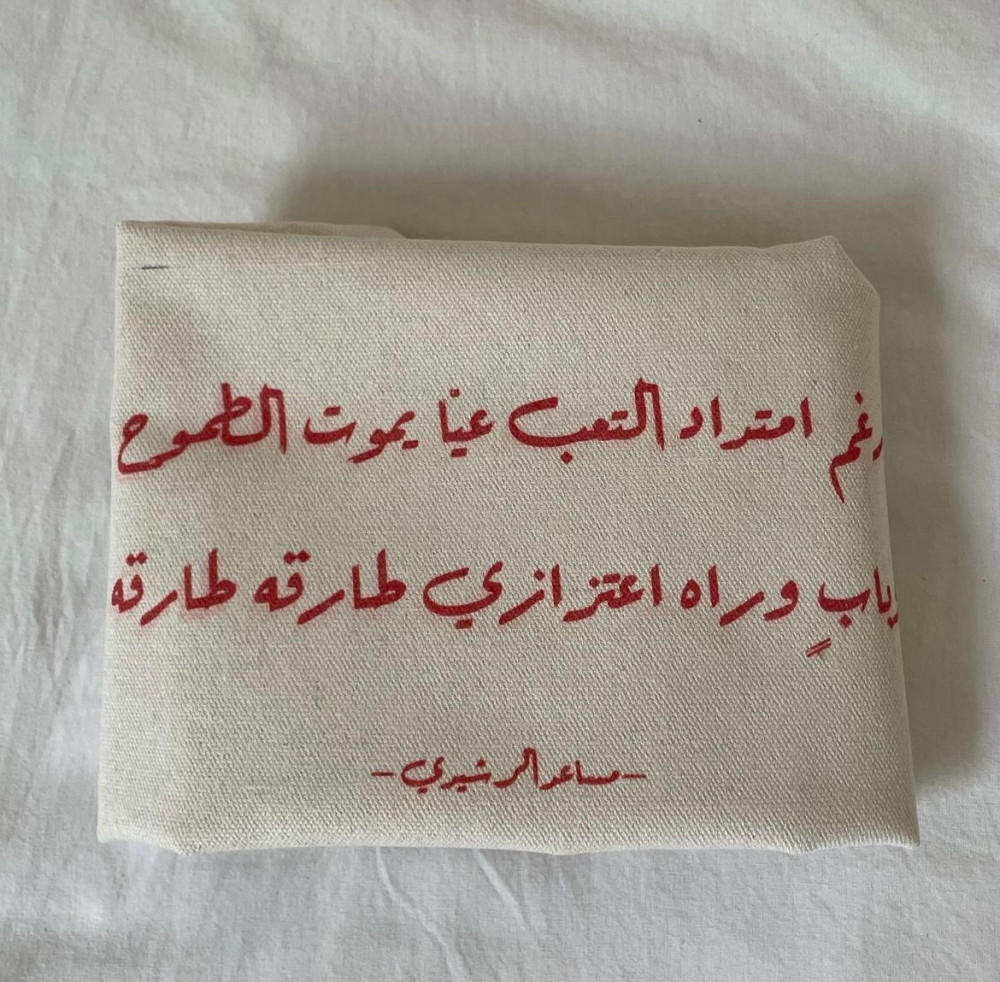 رغم امتداد التعب عيّا يموت الطموح
وبابٍ وراه اعتزازي طارقه طارقه
- مساعد الرشيدي -